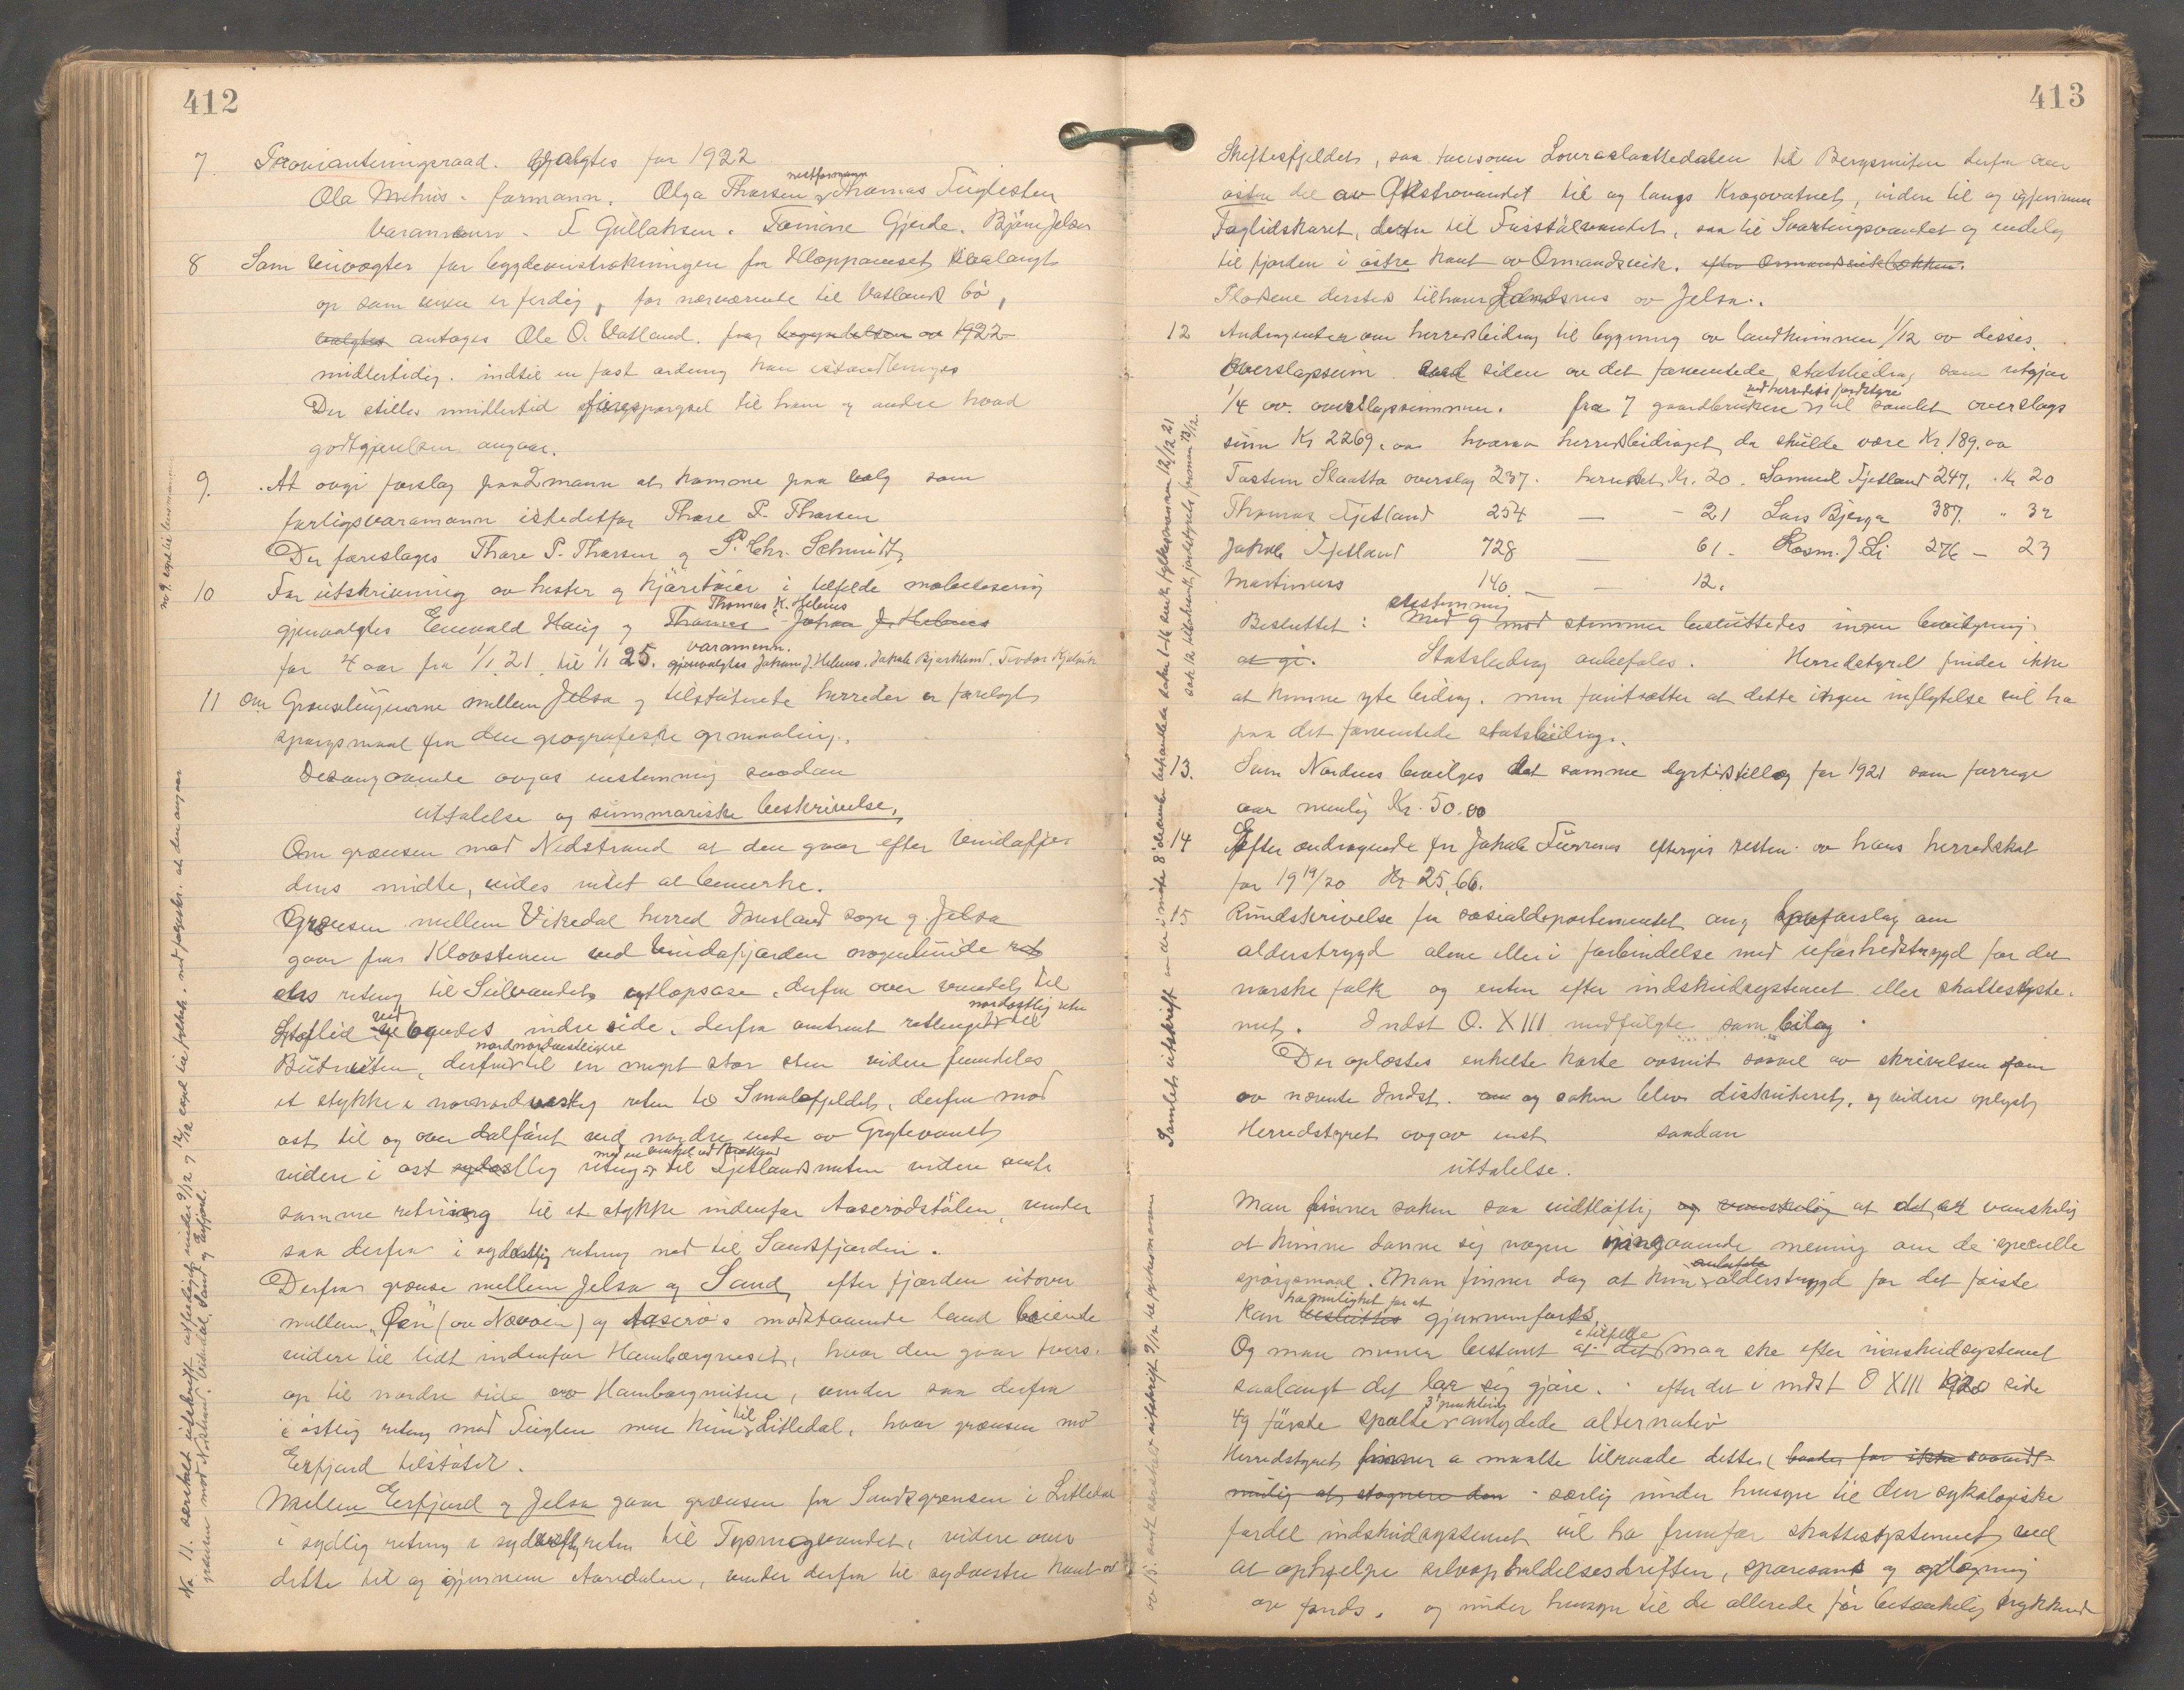 412
7. Provianteringsraad. Gjenvalgtes for 1922
nestformann
Ola Mehus - formann. Olga Thorsen, Thomas Fuglestein
Varamenn - T Gullaksen. Tomine Gjerde. Bjarne Jelsa
8 Som veivogter for bygdeveistrækningen fra Kloppaneset saalangt
op som veien er ferdig, for nærværende til Vatland bö,
valgtes antages Ole O. Vatland. fra begyndelsen av 1922
midlertidig. indtil en fast ordning kan istandbringes
Der stilles imidlertid forespørgsel til ham og andre hvad
godtgjørelsen angaar.
9. At avgi forslag paa 2 mann at komme paa valg som
forligsvaramann istedetfor Thore P. Thorsen
Der foreslages Thore P. Thorsen og P. Chr. Schmidt
10 For utskrivning av hester og kjøretøier i tilfelde mobilisering
Thomas K. Helenes
gjenvalgtes Enevald Haug og Thomas Johan J. Helenes
varamenn.
for 4 aar fra 1/1 21 til 1/1 25. gjenvalgtes Johan J. Helenes. Jakob Bjerklund. Teodor
11 Om Grænselinjerne mellem Jelsa og tilstøtende herreder er forelagt
spørgsmaal fra den geografiske opmaaling.
Desangaaende avgas enstemmig saadan
uttalelse og summariske beskrivelse.
Om grænsen mot Nedstrand at den gaar efter Vindafjor
dens midte, vides intet at bemerke.
Grænsen mellem Vikedal herred Imsland sogn og Jelsa
gaar fra Klovstenen ved Vindafjorden ovenfor
retning til Selvandets utløpsose, derfra over vandet til
nordostlig retn
ved vandets indre side, derfra omtrent retlinjet til
nordnordvestligere
Butnuten, derfra til en meget stor sten videre fremdeles
et stykke i nornordvestlig retn to Smalefjeldet, derfra mod
ost til og over dalføret ved nordre ende av Grytevandet
med en vinkel ved
videre i ost sydostlig retning til Tjetlandsnuten videre omtr
samme retning til et stykke indenfor Aaserødstølen, vender
saa derfra i sydostlig retning ned til Sandsfjorden.
Derfra grænse mellem Jelsa og Sand, efter fjorden utover
mellem "Øen" (ov Nævøien) og Aaserø's motstaaende land bøiende
videre til lidt indenfor Hamborgneset, hvor den gaar tvers
op til nordre side av Hamborgnuten, vender saa derfra
til
i østlig retning mod Fuglen men kun Litledal, hvor grænsen mo
Erfjord tilstøter.
Mellem Erfjord og Jelsa gaar grænsen fra Sandsgrensen i Litledal
i sydlig retning i sydvestlig retn til Tysingvandet, videre over
dette til og gjennem Aaredalen, vender derfra til sydvestre kant av
no 9. exp til lensmann
No. 11. særskilt utskrift utferdiget under 9/12 og 12/12 exped til folketr.
grænsen mot Nedstrand, Vikedal, Sand og Erfjord.
413
Skiftesfjeldet, saa tversover Lovraslaattedalen til Bergsnuten derfra over
østre del av Økstravandet til og langs Krogavatnet, videre til og igjennem
Foglidskaret, derfra til Fusstølvandet, saa til Svartingsvandet og endelig
til fjorden i østre kant av Ormandsvik. efter Ormandsvikbækken.
Pladsene dersteds tilhører Landsnes av Jelsa.
12 Andragender om herredsbidrag til bygning av landkummer 1/12 av disses
Overslagssum. siden av det forventede statsbidrag som utgjør
ved herredets jordstyre
1/4 av overslagsummen. fra 7 gaardbrukere til samlet overslags
sum Kr 2269,oo hvorav herredsbidraget da skulde være Kr. 189.oo
Tostein Slaatta overslag 237. herredet Kr. 20. Samuel Tjetland 247. Kr 20
Thomas Tjetland 254 — - 21 Lars Bjerga 387. " 32
Jakob Tjetland 728 — 61 - Rasm. J Li 276 - 23
Martinus 140. — - 12.
enstemmig
Besluttet: Med 9 mod stemmer besluttedes ingen bevilgning
at gi. Statsbidrag anbefales. Herredstyret finder ikke
at kunne yte bidrag. men forutsetter at dette ingen inflytelse vil ha
paa det forventede statsbidrag.
13. Sven Nordnes bevilges det samme dyrtidstillæg for 1921 som forrige
aar nemlig Kr. 50.00
14 Efter andragende fra Jakob Furrenes eftergis resten av hans herredskat
for 1919/20 Kr 25,66.
15 Rundskrivelse fra sosialdepartementet ang lovforslag om
alderstrygd alene eller i forbindelse med uførhetstrygd for det
norske folk og enten efter indskudsystemet eller skattesyste-
met. Indst O. XIII medfulgte som bilag.
Der oplæstes enkelte korte avsnit saavel av skrivelsen som
av nævnte Indst. og saken blev distribueret, og videre oplyst
Herredstyret avgav enst saadan
uttalelse.
Man finner saken saa vidtløftig og vanskelig at det er vanskelig
at kunne danne sig nogen indgaaende mening om de specielle
anbefale
spørgsmaal. Man finner dog at kun alderstrygd for det første
ha mulighet for at
kan besluttes gjennemføres
i tilfelde
Og man mener bestemt at det maa ske efter innskudsystemet
saalangt det lar sig gjøre. efter det i indst O XIII 1920 side
3' punktum
49 første spalte antydede alternativ
Herredstyret finner a maatte tilraade dette, baade for ikke saavidt
mulig at stagnere den - særlig under hensyn til den sykologiske
fordel indskudsystemet vil ha fremfor skattesystemet ved
at ophjelpe selvophholdelsesdriften, sparesans og oplægning
av fonds, og under hensyn til de allerede før betænkelig trykkende
Samlet utskrift av de i møte 8 december behandlede saker 1-16 sendt fylkesmannen 12/12 21
sak 12 tilbakesendt jordstyrets forman 13/12.